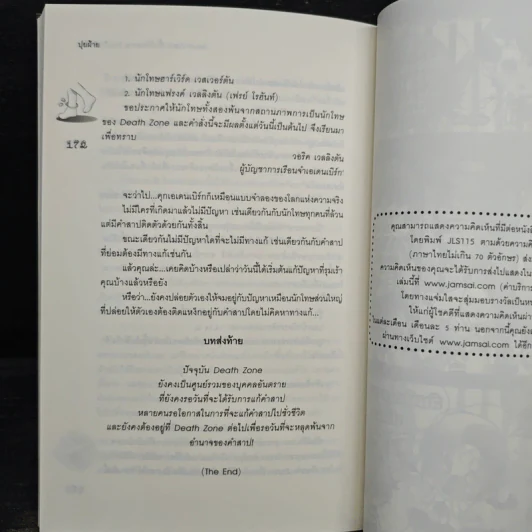 ปุยฝ้าย
1. นักโทษฮาร์เวิร์ด เวสเวอร์ตัน
2. นักโทษแฟรงค์ เวลลิงตัน (เฟรย์ โรฮันท์)
ขอประกาศให้นักโทษทั้งสองพ้นจากสถานภาพการเป็นนักโทษ
ของ Death Zone และคำสั่งนี้จะมีผลตั้งแต่วันนี้เป็นต้นไป จึงเรียนมา
เพื่อทราบ
วอริค เวลลิงตัน
ผู้บัญชาการเรือนจำเอเดนเบิร์ก
จะว่าไป...คุกเอเดนเบิร์กก็เหมือนแบบจำลองของโลกแห่งความจริง
ไม่มีใครที่เกิดมาแล้วไม่มีปัญหา เช่นเดียวกันกับนักโทษทุกคนที่ล้วน
แต่มีคำสาปติดตัวด้วยกันทั้งสิ้น
ขณะเดียวกันไม่มีปัญหาใดที่จะไม่มีทางแก้ เช่นเดียวกันกับคำสาป
ที่ย่อมต้องมีทางแก้เช่นกัน
แล้วคุณล่ะ...เคยคิดบ้างหรือเปล่าว่าวันนี้ได้เริ่มต้นแก้ปัญหาที่รุมเร้า
คุณบ้างแล้วหรือยัง
หรือว่า...ยังคงปล่อยตัวเองให้จมอยู่กับปัญหาเหมือนนักโทษส่วนใหญ่
ที่ปล่อยให้ตัวเองต้องติดแหง็กอยู่กับคำสาปโดยไม่คิดหาทางแก้...
บทส่งท้าย
ปัจจุบัน Death Zone
ยังคงเป็นศูนย์รวมของบุคคลอันตราย
ที่ยังคงรอวันที่จะได้รับการแก้คำสาป
หลายคนรอโอกาสในการที่จะแก้คำสาปไปชั่วชีวิต
และยังคงต้องอยู่ที่ Death Zone ต่อไปเพื่อรอวันที่จะหลุดพ้นจาก
อำนาจของคำสาป!
(The End)
คุณสามารถแสดงความคิดเห็นที่มีต่อหนังสื
โดยพิมพ์ JLS115 ตามด้วยความคิ
(ภาษาไทยไม่เกิน 70 ตัวอักษร) ส่ง
ความคิดเห็นของคุณจะได้รับการส่งไปแสดงใน
เล่มนี้ที่ www.jamsai.com (ค่าบริการ
โดยทางแจ่มใสจะสุ่มมอบรางวัลเป็นหนั
ให้แก่ผู้โชคดีที่แสดงความคิดเห็นผ่า
ในแต่ละเดือน เดือนละ 5 ท่าน นอกจากนี้คุณยัง
ผ่านทางเว็บไซต์ www.jamsai.com ได้อีก